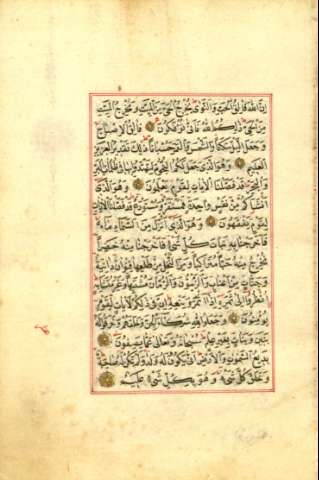 إن الله فالق الحب والنوى يخرج الحي من الميت ومخرج الميت
من الحي ذلكم الله فأنى تؤفكون فالق الإصباح
وجعل الليل سكنا والشمس والقمر حسبانا ذلك تقدير العزيز
العليم وهو الذي جعل لكم النجوم لتهتدوا بها في ظلمات البر
والبحر قد فصلنا الآيات لقوم يعلمون وهو الذي
أنشأكم من نفس واحدة فمستقر ومستودع قد فصلنا الآيات
لقوم يفقهون وهو الذي أنزل من السماء ماء
فأخرجنا به نبات كل شيء فأخرجنا منه خضرا
نخرج منه حبا متراكبا ومن النخل من طلعها قنوان دانية
وجنات من أعناب والزيتون والرمان مشتبها وغير متشابه
انظروا إلى ثمره إذا أثمر وينعه إن في ذلكم لآيات لقوم
يؤمنون وجعلوا لله شركاء الجن وخلقهم وخرقوا له
بنين وبنات بغير علم سبحانه وتعالى عما يصفون
بديع السموات والأرض أنى يكون له ولد ولم تكن له صاحبة
وخلق كل شيء وهو بكل شيء عليم